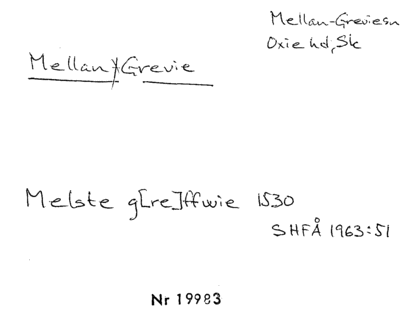 Mellan-Greviesn
Oxie hd, Sk
Mellan-Grevie
Melste g[re]ffwie 1530
SHFÅ 1963:51
Nr 19983